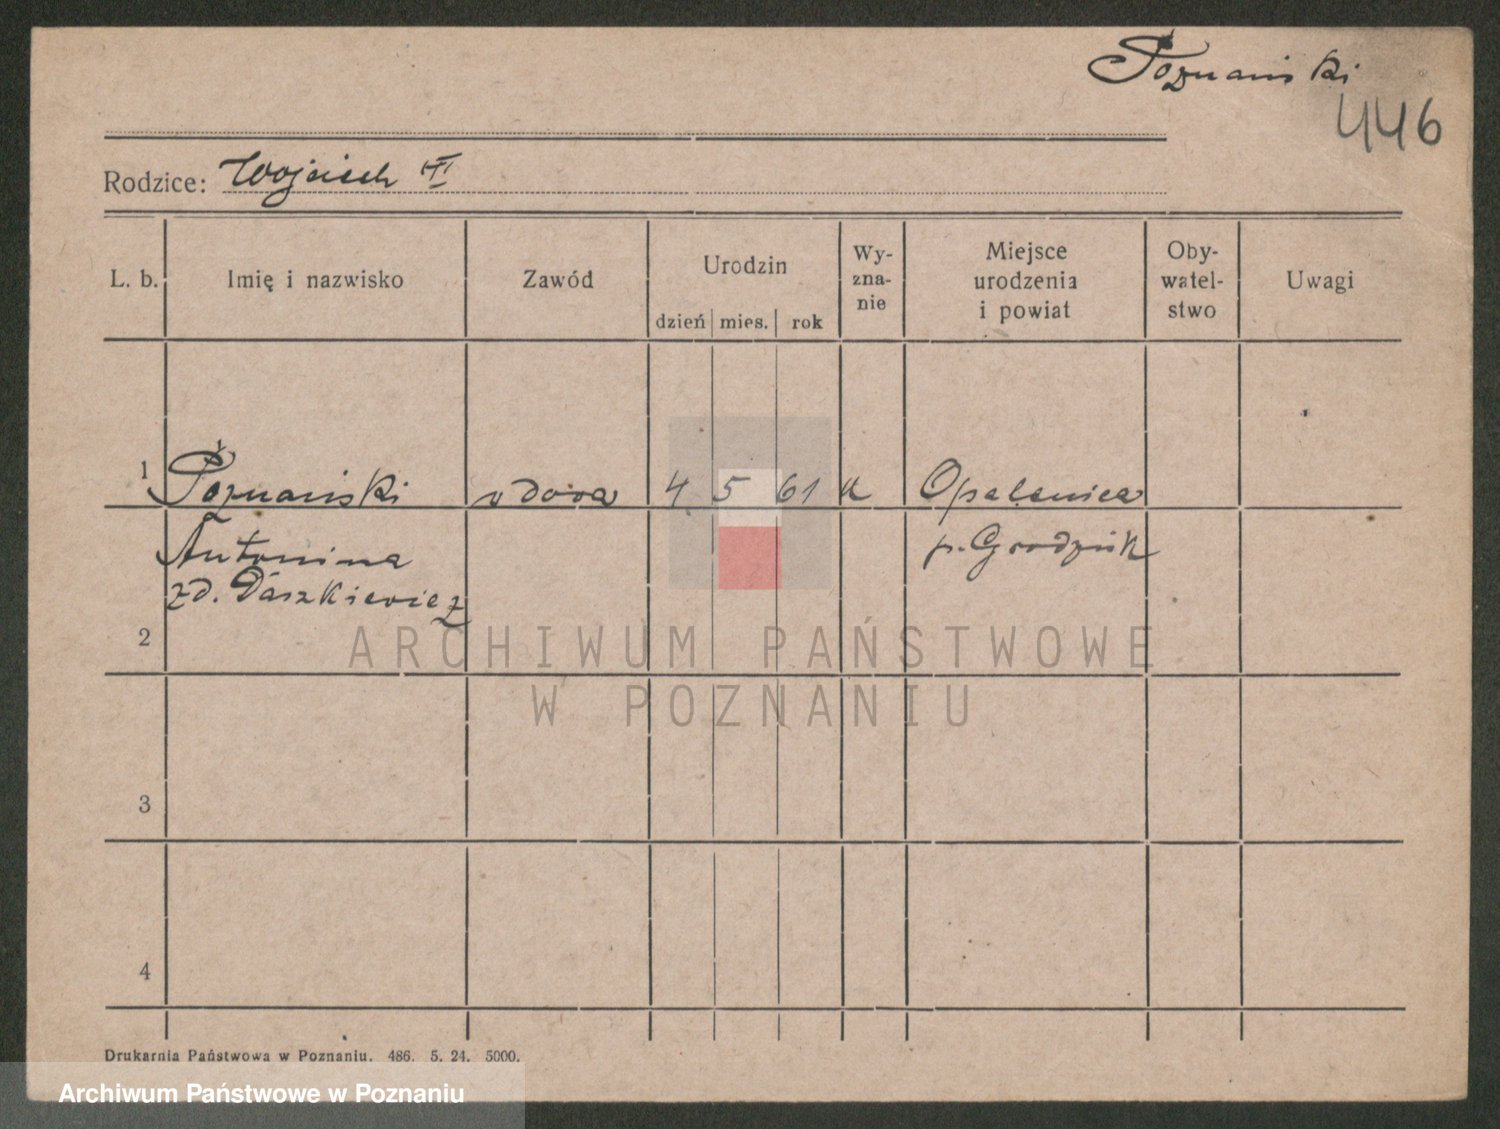 Poznański
446
Rodzice: Wojciech III
L. b. Imię i nazwisko Zawód Urodzin dzień mies. rok Wy-zna-nie Miejsce urodzenia i powiat Oby-watel-stwo Uwagi
1 Poznański wdowa 4 5 61 k Opalenica
Antonina p. Grodzisk
zd. Daszkiewicz
2
ARCHIWUM PAŃSTWOWE
W POZNANIU
3
4
Drukarnia Państwowa w Poznaniu. 486. 5. 24. 5000.
Archiwum Państwowe w Poznaniu